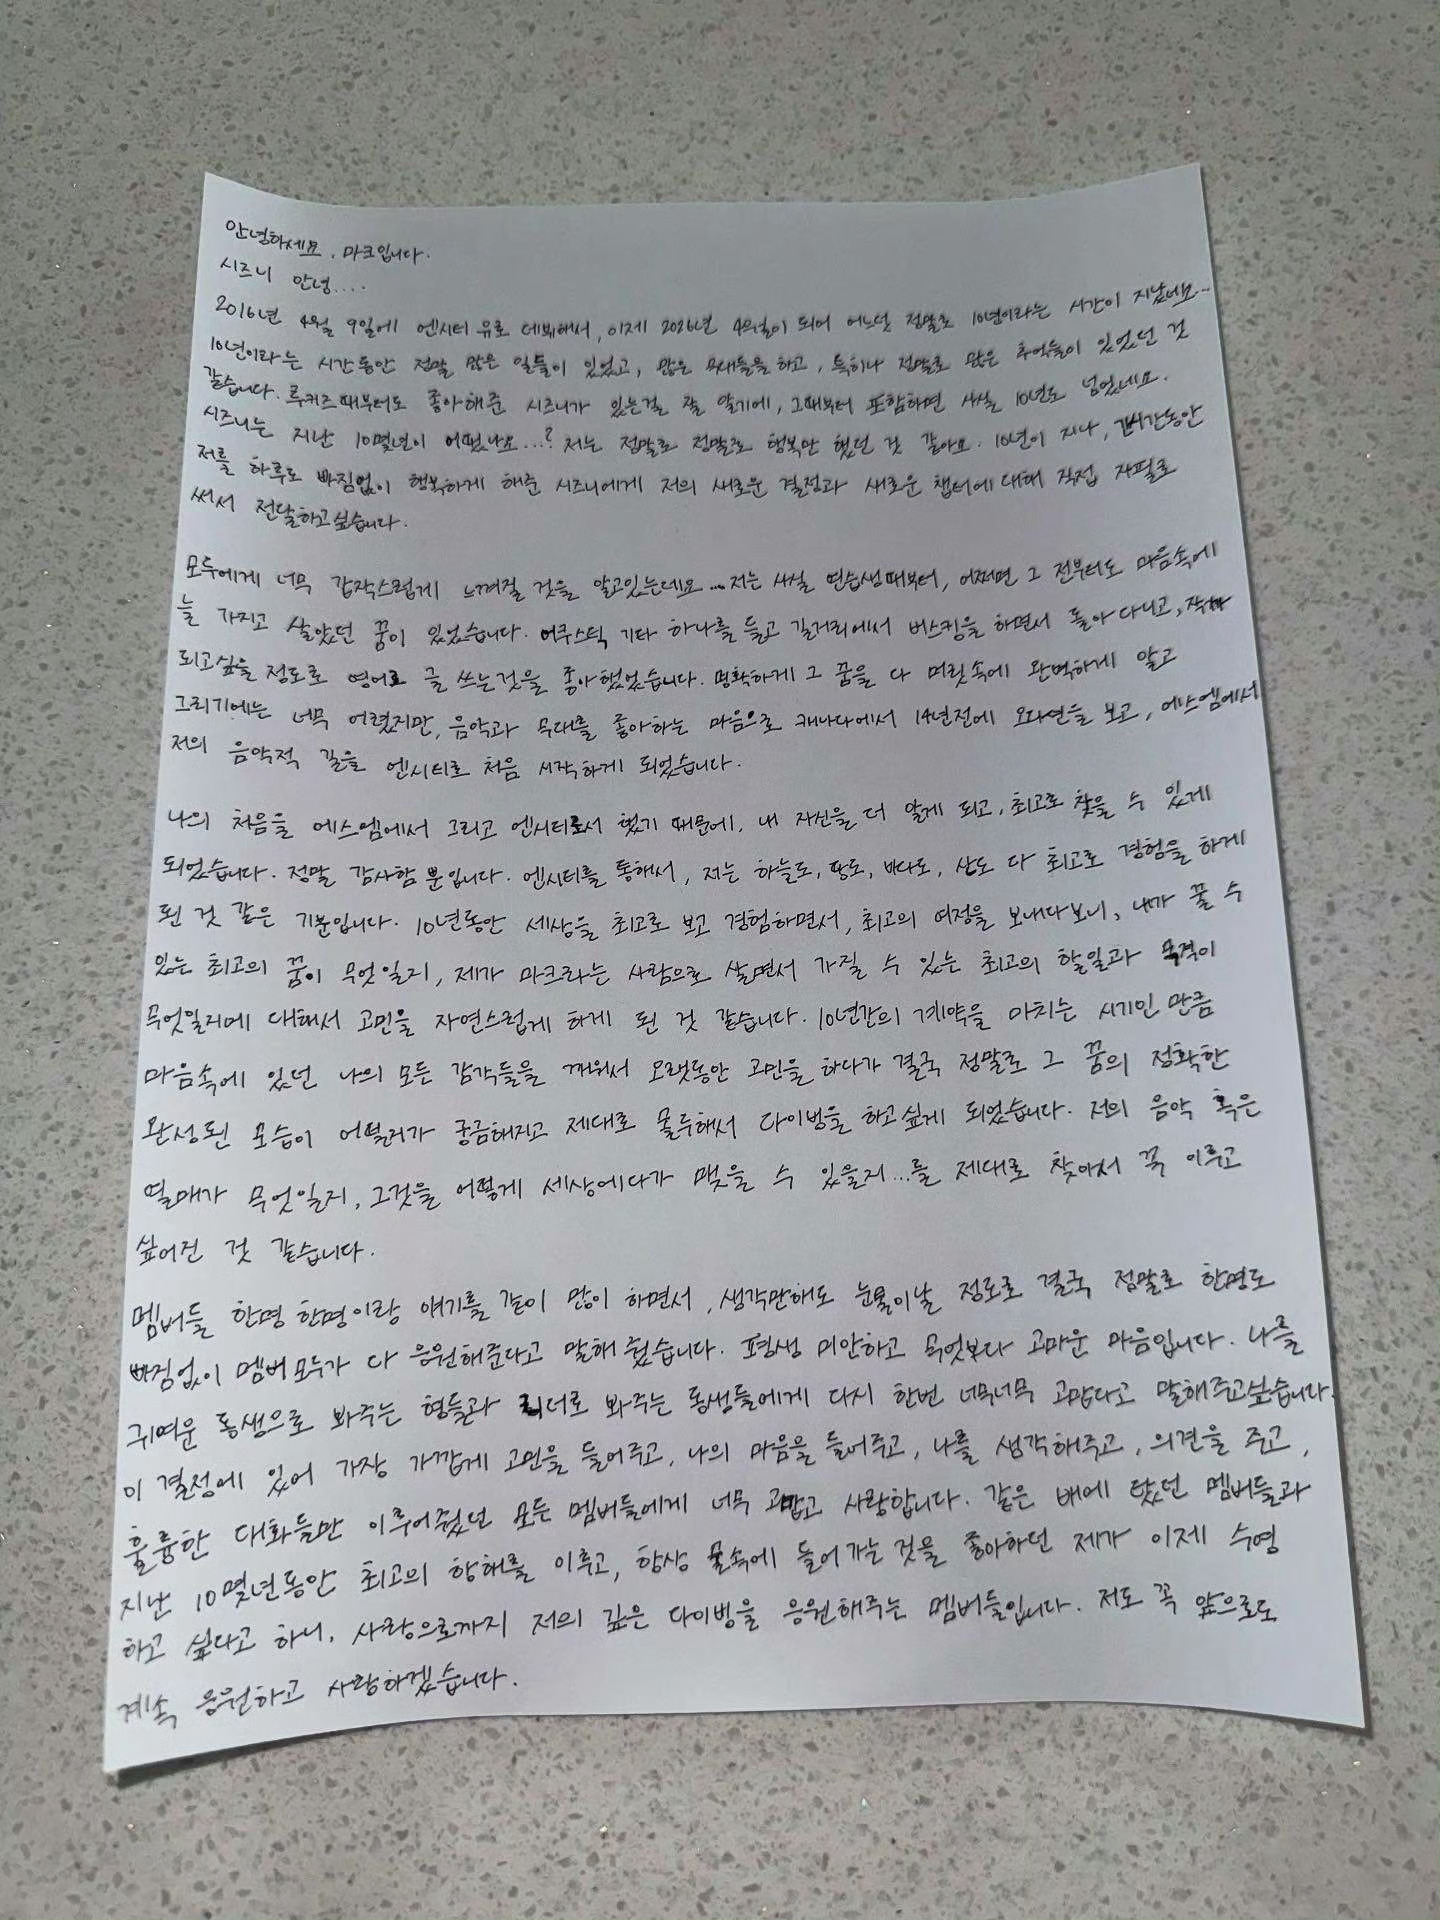 안녕하세요. 마크입니다.
시즈니 안녕....
2016년 4월 9일에 엔시티 유로 데뷔해서, 이제 2026년 4월이 되어 어느덧 정말로 10년이라는 시간이 지났네요...
10년이라는 시간동안 정말 많은 일들이 있었고, 많은 무대들을 하고, 특히나 정말로 많은 추억들이 있었던 것
같습니다. 루키즈때부터도 좋아해준 시즈니가 있는걸 잘 알기에, 그때부터 포함하면 사실 10년도 넘었네요.
시즈니는 지난 10몇년이 어땠나요...? 저는 정말로 정말로 행복만 했던 것 같아요. 10년이 지나, 긴시간동안
저를 하루도 빠짐없이 행복하게 해준 시즈니에게 저의 새로운 결정과 새로운 챕터에 대해 직접 자필로
써서 전달하고싶습니다.
모두에게 너무 갑작스럽게 느껴질 것을 알고있는데요... 저는 사실 연습생때부터, 어쩌면 그 전부터도 마음속에
늘 가지고 살았던 꿈이 있었습니다. 어쿠스틱 기타 하나를 들고 길거리에서 버스킹을 하면서 돌아다니고, 작가
되고싶을 정도로 영어로 글 쓰는것을 좋아했었습니다. 명확하게 그 꿈을 다 머릿속에 완벽하게 알고
그리기에는 너무 어렸지만, 음악과 무대를 좋아하는 마음으로 캐나다에서 14년전에 오디션을 보고, 에스엠에서
저의 음악적 길을 엔시티로 처음 시작하게 되었습니다.
나의 처음을 에스엠에서 그리고 엔시티로서 했기 때문에, 내 자신을 더 알게 되고, 최고로 찾을 수 있게
되었습니다. 정말 감사함 뿐입니다. 엔시티를 통해서, 저는 하늘도, 땅도, 바다도, 산도 다 최고로 경험을 하게
된 것 같은 기분입니다. 10년동안 세상을 최고로 보고 경험하면서, 최고의 여정을 보내다보니, 내가 꿀 수
있는 최고의 꿈이 무엇일지, 제가 마크라는 사람으로 살면서 가질 수 있는 최고의 할일과 목적이
무엇일지에 대해서 고민을 자연스럽게 하게 된 것 같습니다. 10년간의 계약을 마치는 시기인 만큼
마음속에 있던 나의 모든 감각들을 깨워서 오랫동안 고민을 하다가 결국 정말로 그 꿈의 정확한
완성된 모습이 어떨지가 궁금해지고 제대로 몰두해서 다이빙을 하고싶게 되었습니다. 저의 음악 혹은
열매가 무엇일지, 그것을 어떻게 세상에다가 맺을 수 있을지...를 제대로 찾아서 꼭 이루고
싶어진 것 같습니다.
멤버들 한명 한명이랑 얘기를 같이 많이 하면서, 생각만해도 눈물이날 정도로 결국 정말로 한명도
빠짐없이 멤버 모두가 다 응원해준다고 말해 줬습니다. 평생 미안하고 무엇보다 고마운 마음입니다. 나를
귀여운 동생으로 봐주는 형들과 리더로 봐주는 동생들에게 다시 한번 너무너무 고맙다고 말해주고싶습니다.
이 결정에 있어 가장 가깝게 고민을 들어주고, 나의 마음을 들어주고, 나를 생각해주고, 의견을 주고,
훌륭한 대화들만 이루어줬던 모든 멤버들에게 너무 고맙고 사랑합니다. 같은 배에 탔던 멤버들과
지난 10몇년동안 최고의 항해를 이루고, 항상 물속에 들어가는 것을 좋아하던 제가 이제 수영
하고 싶다고 하니, 사랑으로까지 저의 깊은 다이빙을 응원해주는 멤버들입니다. 저도 꼭 앞으로도
계속 응원하고 사랑하겠습니다.